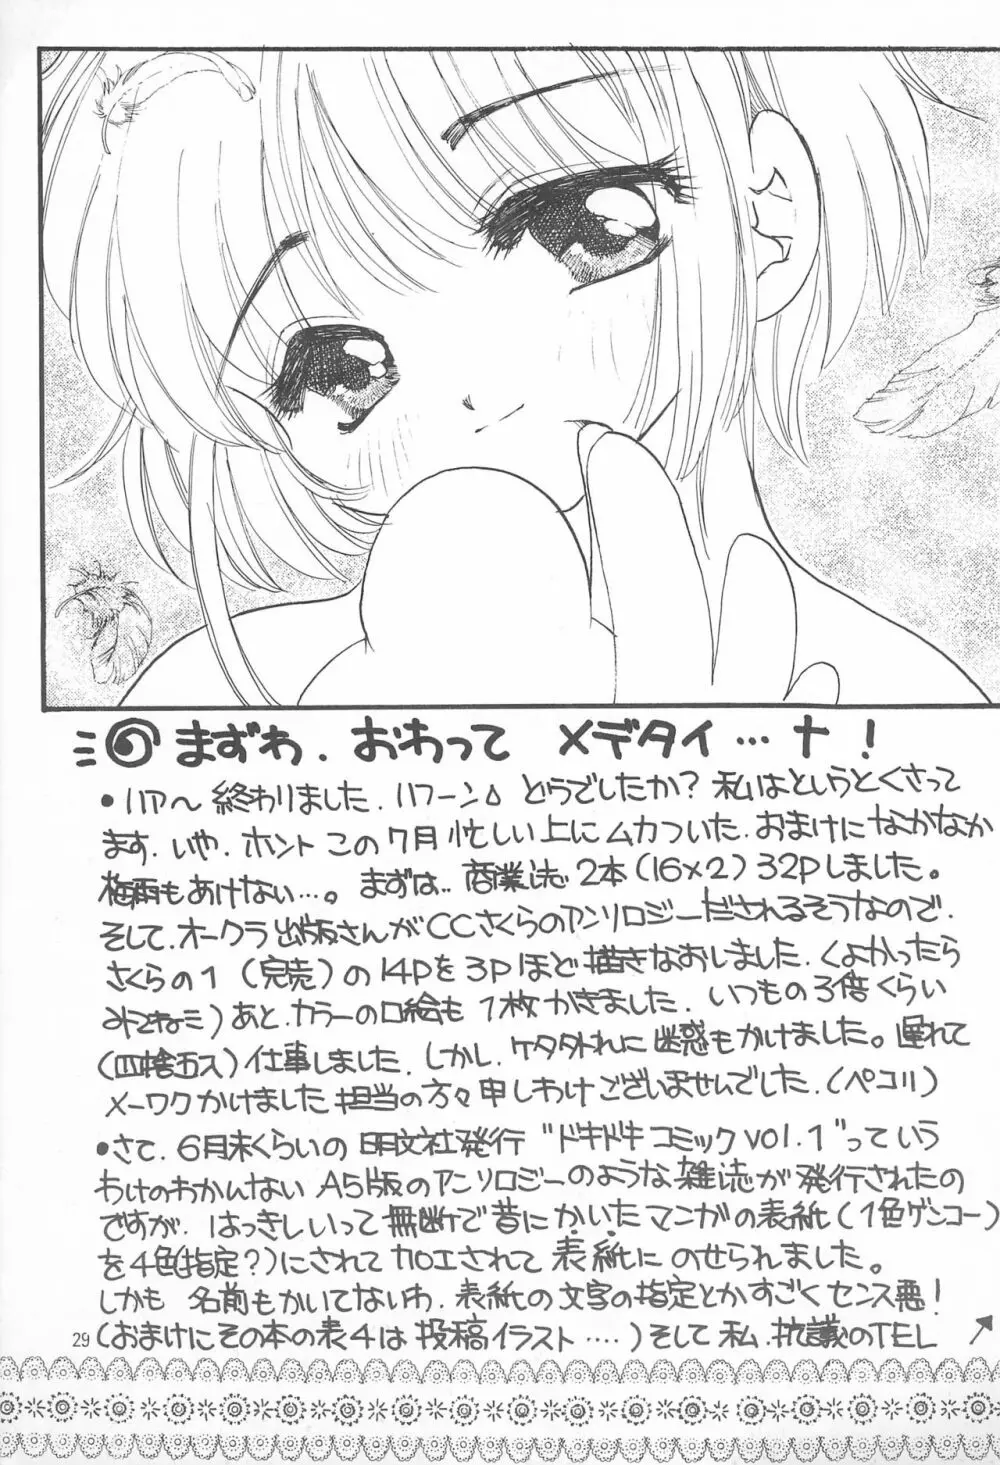 まずわ．おわって メデタイ…ナ！
・ハア〜 終わりました．ハフーン△ どうでしたか？私はというとくさって
ます．いや．ホント この7月 忙しい上にムカついた．おまけに なかなか
梅雨もあけない…。まずは．商業誌2本(16×2) 32Pしました。
そして．オークラ出版さんがCCさくらのアンソロジーだされるそうなので．
さくらの1 (完売)の14Pを3Pほど描きなおしました．くよかったら
みてねミ)あと．カラーの口絵も 1枚かきました．いつもの3倍くらい
(四捨五入)仕事しました．しかし．ケタ外れに 迷惑もかけました。遅れて
メーワクかけました担当の方々申しわけございませんでした．(ペコリ)
・さて．6月末くらいの 明文社発行 “ドキドキコミックvol.1”っていう
わけのわかんない A5版のアンソロジーのような雑誌が発行されたの
ですが．はっきしいって無断で昔にかいたマンガの表紙(1色ゲンコー)
を4色(指定？)にされて加工されて表紙に のせられました。
しかも 名前もかいてないわ．表紙の文字の指定とかすごくセンス悪！
(おまけにその本の表4は投稿イラスト‥‥)そして私．抗議のTEL
29